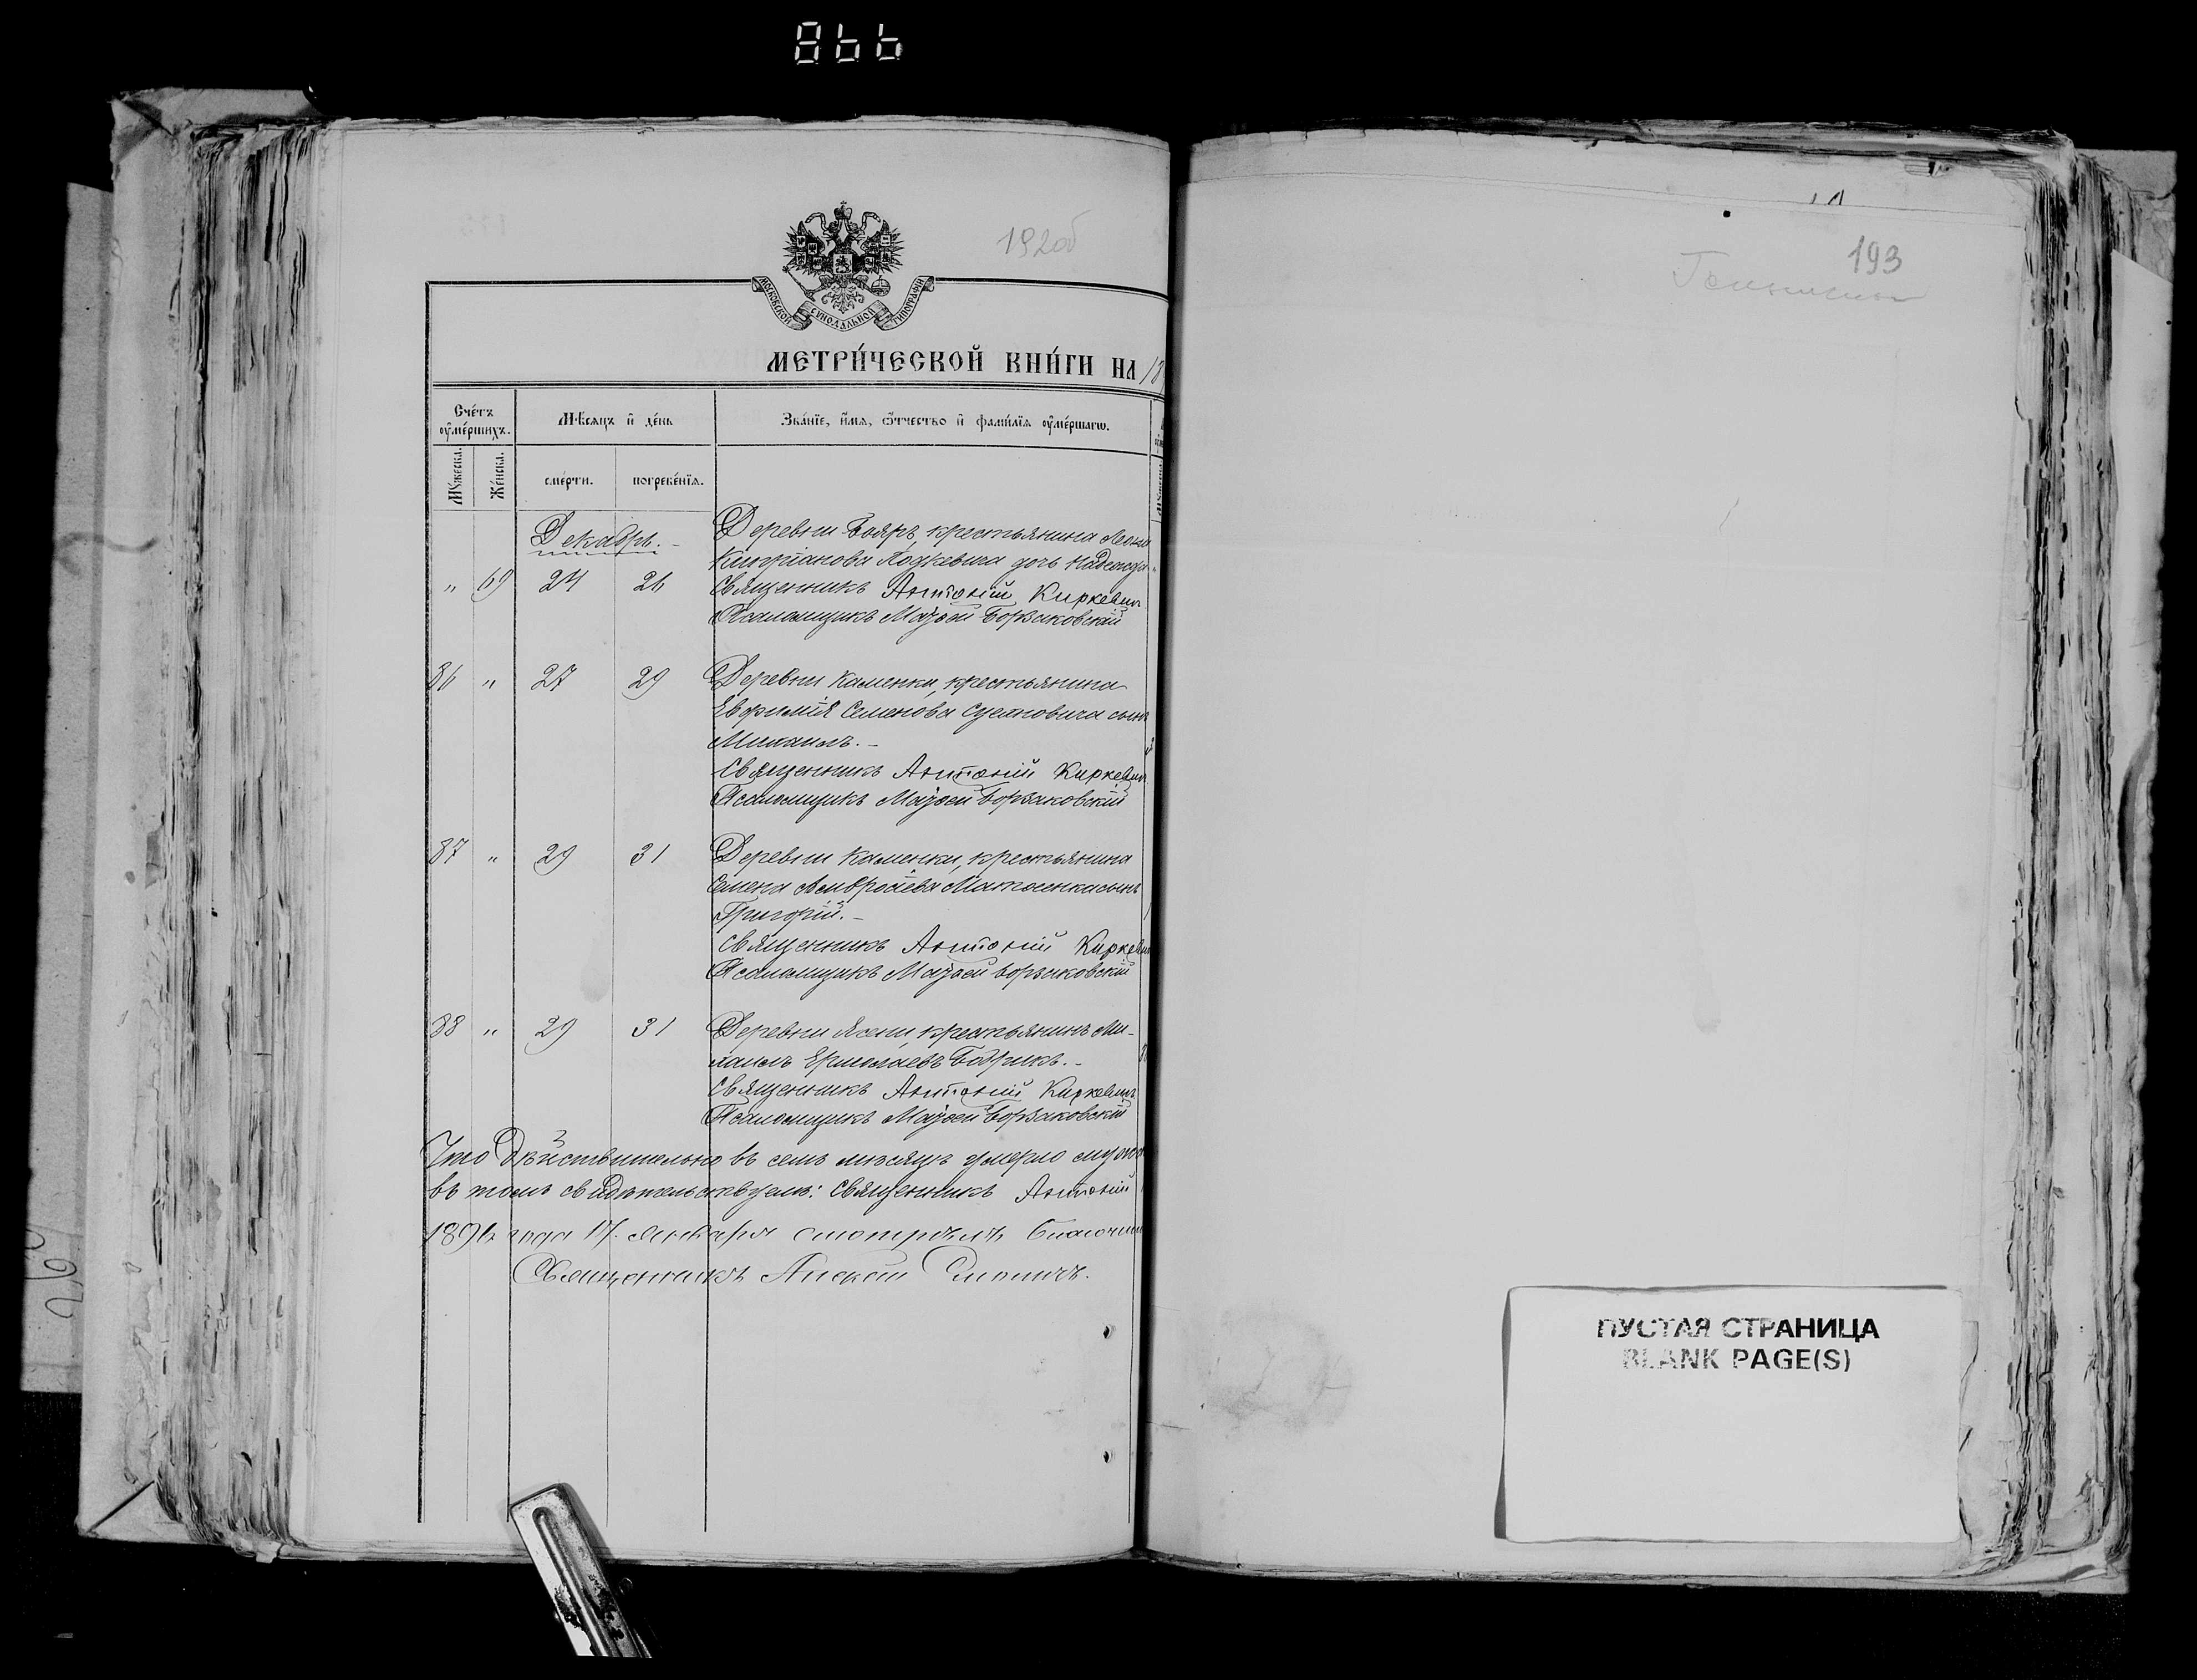 866
192об
193
МОСКОВСКОЙ СѴНОДАЛЬНОЙ ТИПОГРАФІИ
МЕТРИ́ЧЕСКОЙ КНИ́ГИ НА 18
Сче́тъ оуме́ршихъ.
Мѣ́сяцъ и де́нь
Зва́нїе, и́мя, ѻ́тчество и фами́лїя оуме́ршагѡ.
Му́жеска.
Же́нска.
сме́рти.
погребе́нїя.
Декабрь.
Деревни Бояръ, крестьянина
Кипріанова Лодкевича дочь Надежда
" 69 24 26 Священникъ Антоній Киркевич
Псаломщикъ Матѳей Борзаковскій
86 " 27 29 Деревни Каменки, крестьянина
Евфимія Семенова сынъ
Михаилъ.
Священникъ Антоній Киркевич
Псаломщикъ Матѳей Борзаковскій
87 " 29 31 Деревни Каменки, крестьянина
Семена Амвросіева сынъ
Григорій.
Священникъ Антоній Киркевич
Псаломщикъ Матѳей Борзаковскій
88 " 29 31 Деревни Ясени, крестьянинъ Ми-
хаилъ Ермолаевъ Бобрикъ.
Священникъ Антоній Киркевичъ
Псаломщикъ Матѳей Борзаковскій
Что дѣйствительно въ семъ мѣсяцѣ умерло
въ томъ свидѣтельствуемъ: Священникъ Антоній
1896 года 17 января смотрѣлъ Благочин
Священникъ
ПУСТАЯ СТРАНИЦА
BLANK PAGE(S)